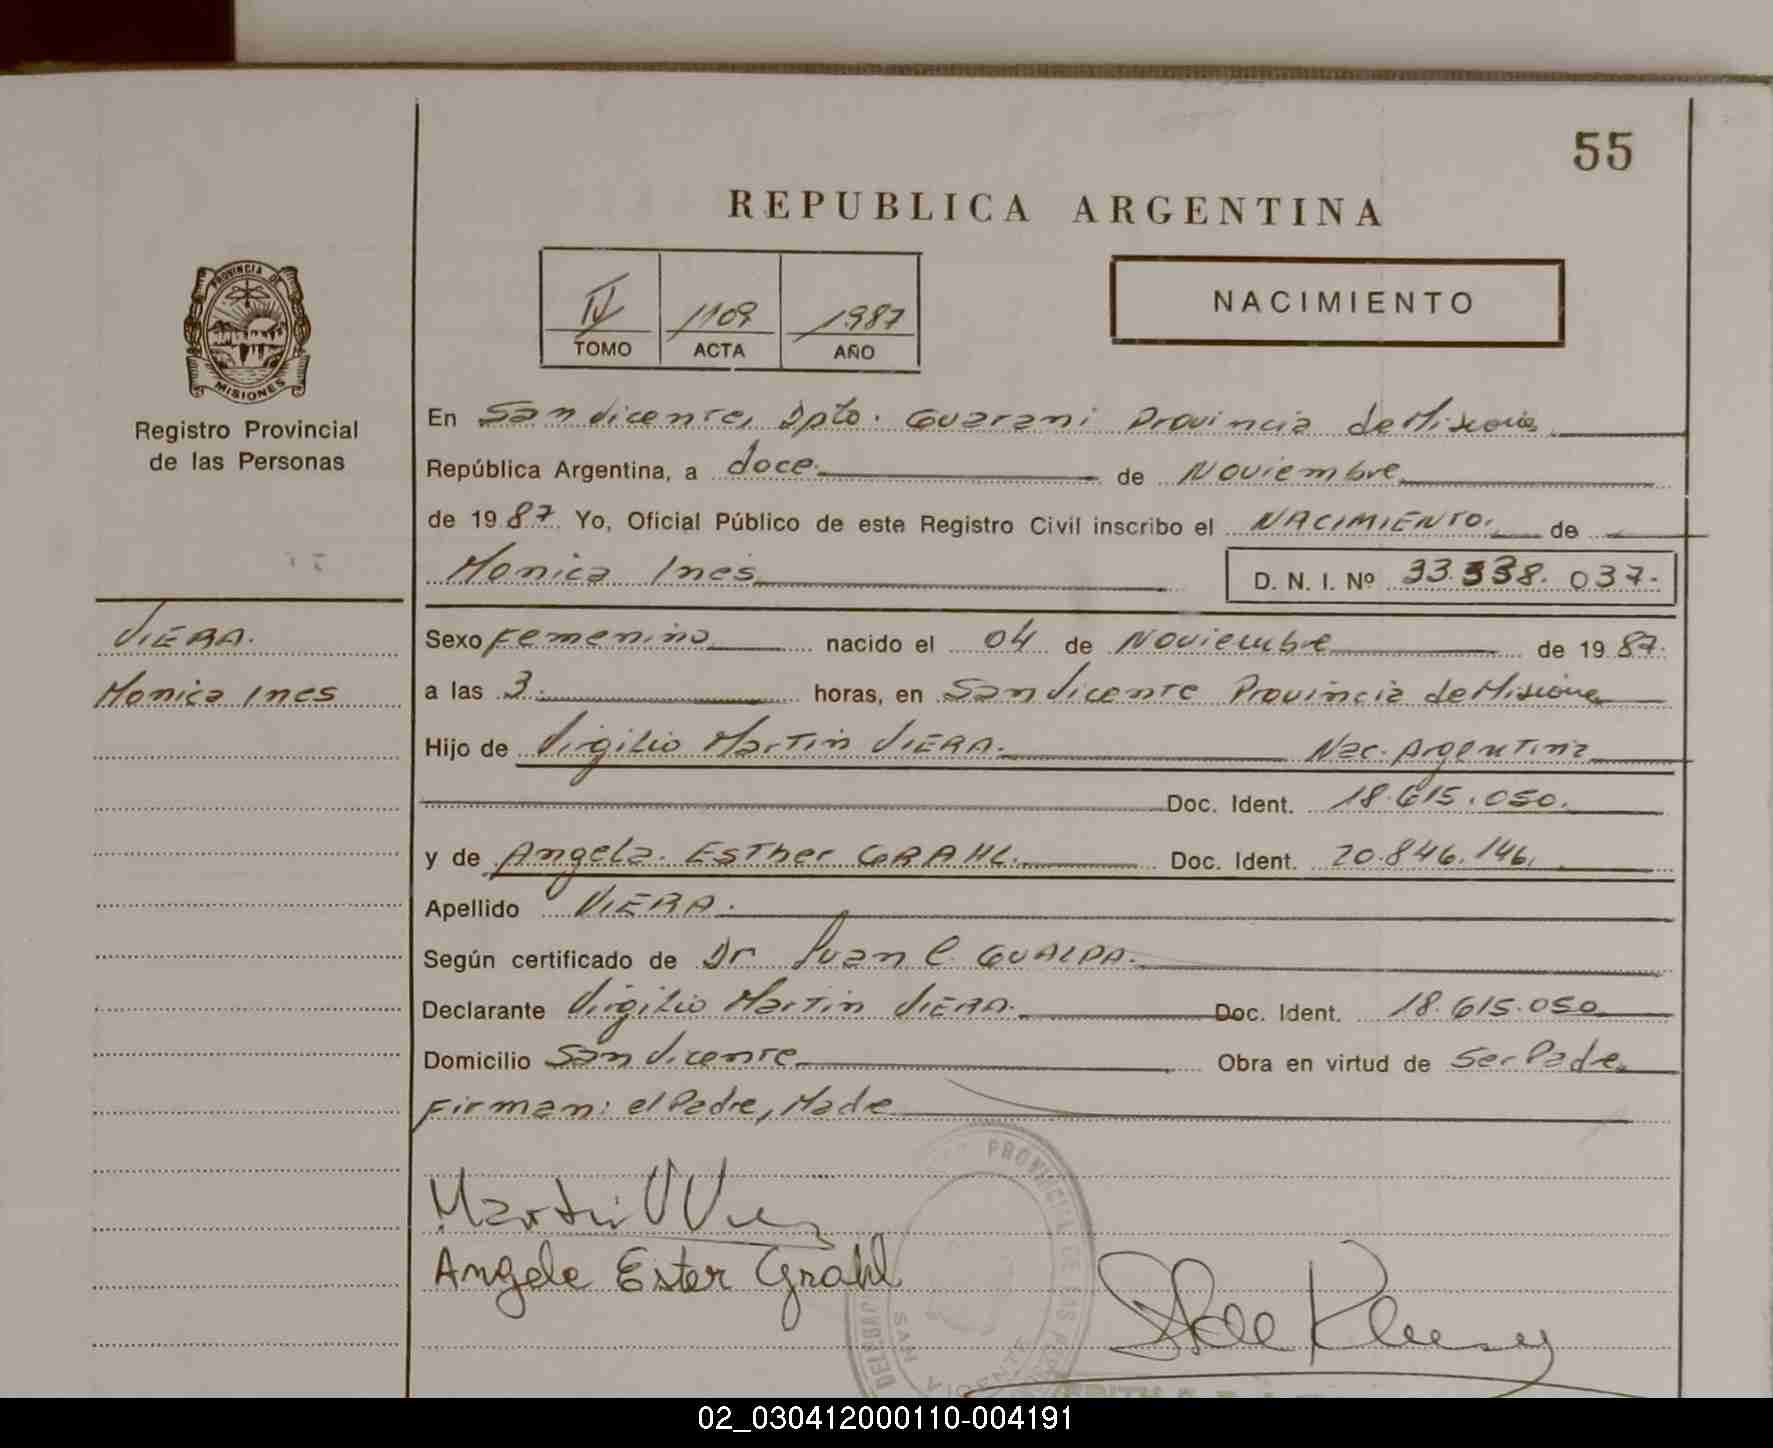 55
REPUBLICA ARGENTINA
PROVINCIA DE
MISIONES
Registro Provincial
de las Personas
IV 1109 1987
TOMO ACTA AÑO
NACIMIENTO
En San Vicente, Dpto. Guarani Provincia de Misiones
República Argentina, a doce. de Noviembre
de 19 87. Yo, Oficial Público de este Registro Civil inscribo el NACIMIENTO. de
Monica Ines D. N. I. Nº 33.338.037.
VIERA.
Monica Ines
Sexo Femenino nacido el 04 de Noviembre de 19 87.
a las 3. horas, en San Vicente Provincia de Misiones
Hijo de Virgilio Martin VIERA. Nac. Argentina
Doc. Ident. 18.615.050.
y de Angela. Esther GRAHL. Doc. Ident. 20.846.146.
Apellido VIERA.
Según certificado de Dr Juan C. GUALPA.
Declarante Virgilio Martin VIERA. Doc. Ident. 18.615.050
Domicilio San Vicente Obra en virtud de Ser Padre
Firman: el Padre, Madre
Martin V
Angela Ester Grahl
PROVINCIAL DE LAS
SAN VICENTE
02_030412000110-004191